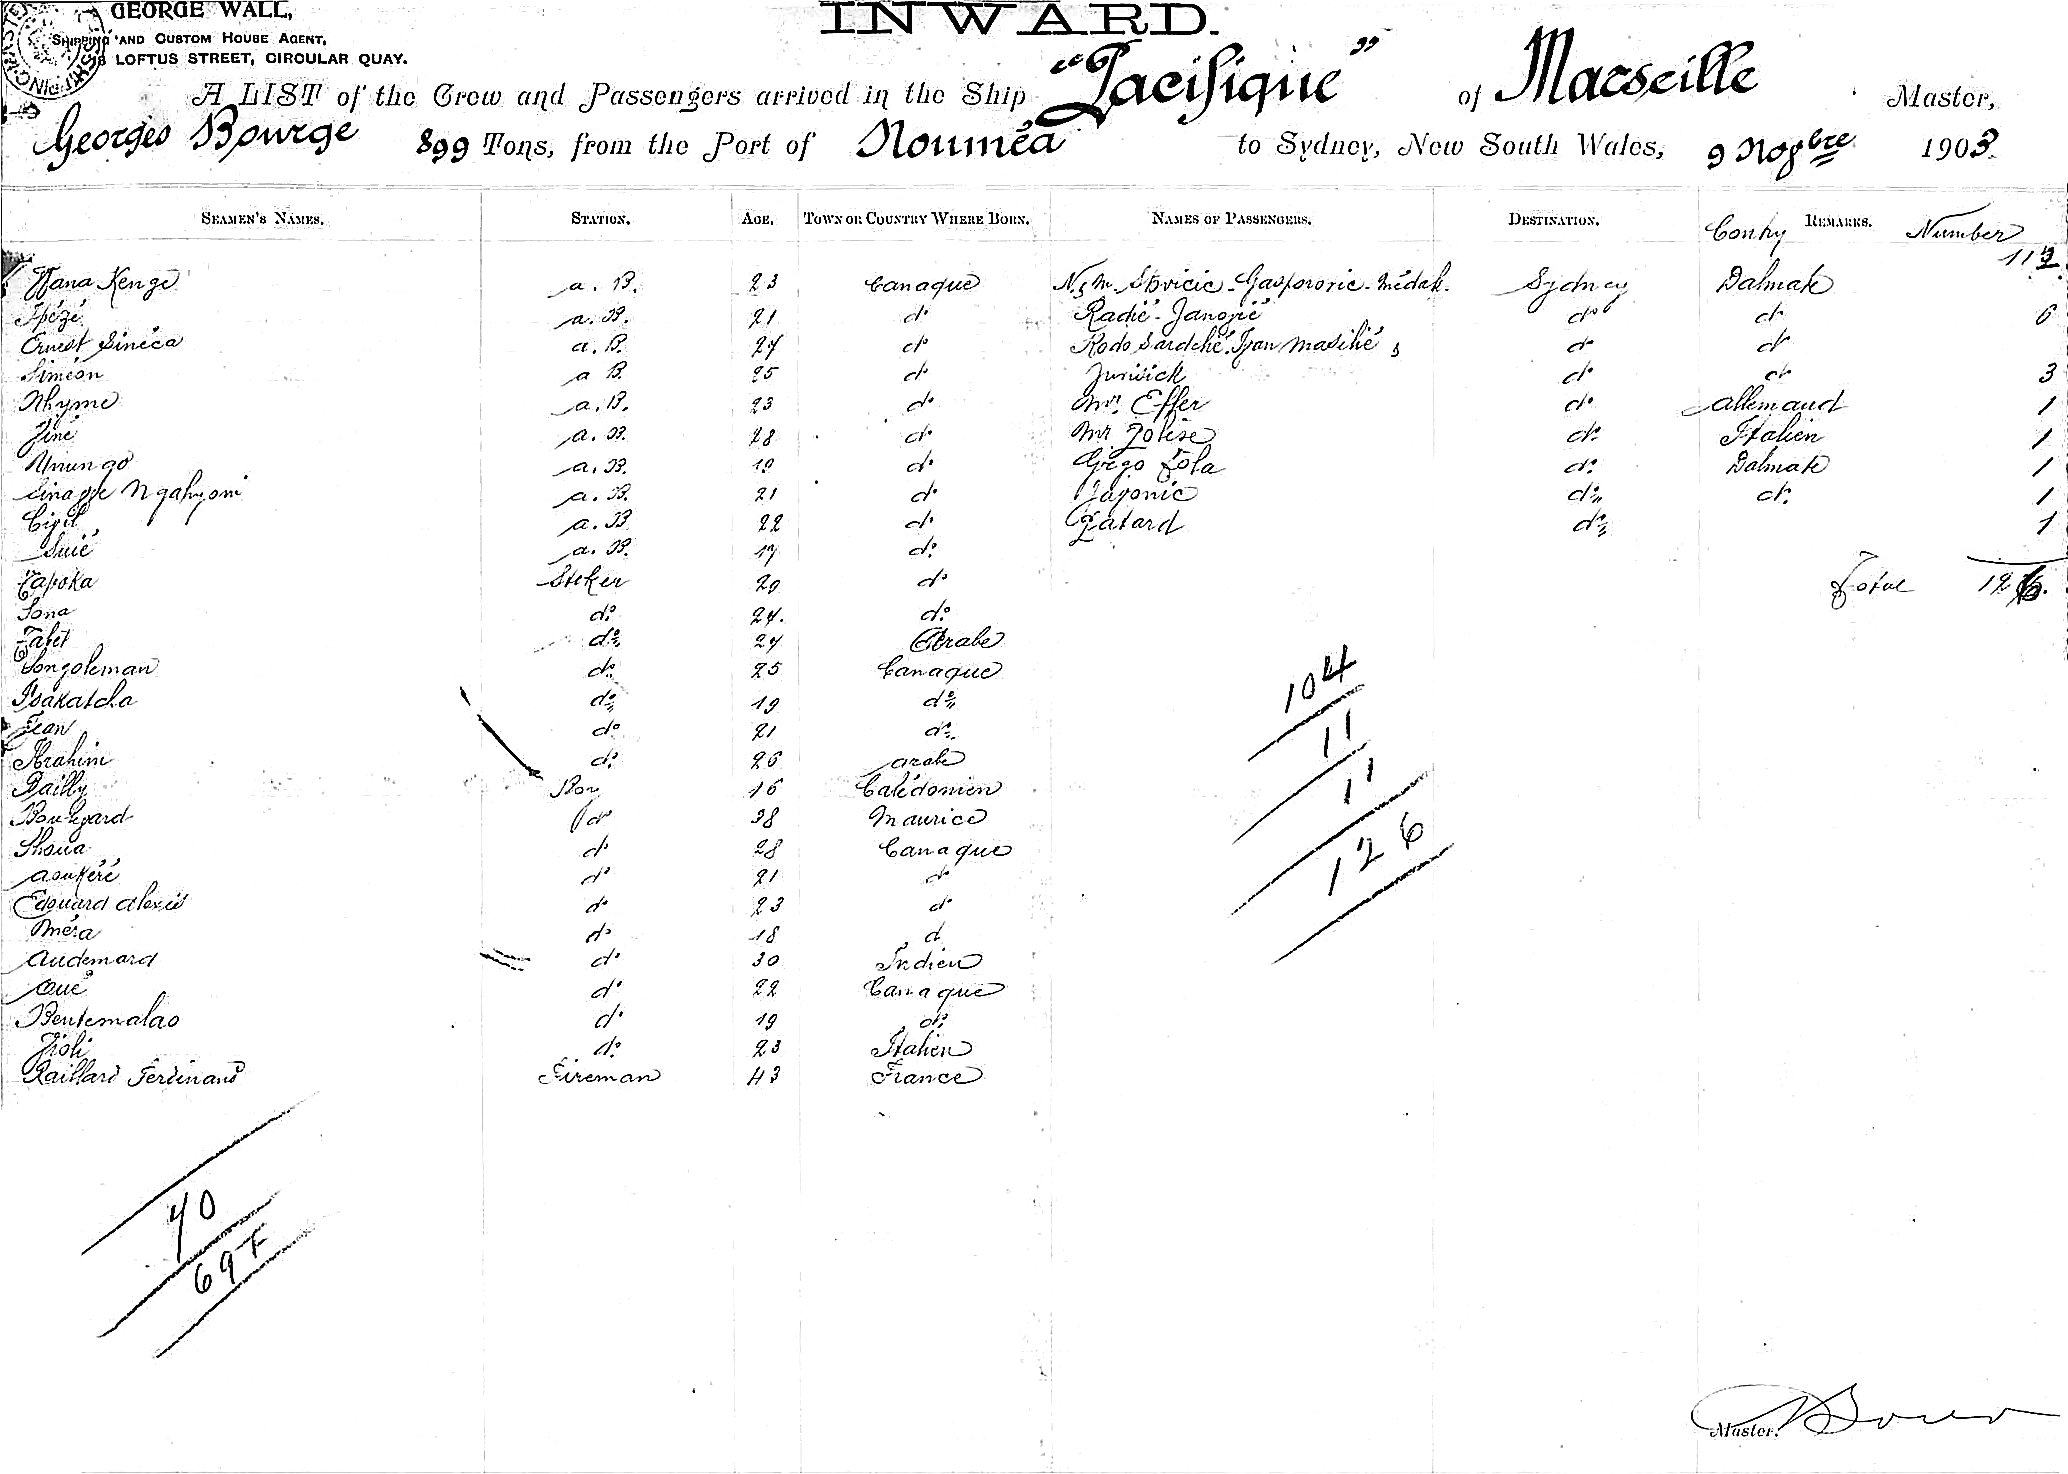 GEORGE WALL,
SHIPPING AND CUSTOM HOUSE AGENT,
LOFTUS STREET, CIRCULAR QUAY.
INWARD.
A LIST of the Crew and Passengers arrived in the Ship "Pacifique" of Marseille Master,
Georges Bourge 899 Tons, from the Port of Nouméa to Sydney, New South Wales, 9 Nobre 1903.
SEAMEN'S NAMES. STATION. AGE. TOWN OR COUNTRY WHERE BORN. NAMES OF PASSENGERS. DESTINATION. Contry REMARKS. Number
Wana Kenge a. B. 23 Canaque Sydney Dalmate
a. B. 21 do Radić - do do 6
Ernest Sinéca a. B. 24 do do do
Siméon a B. 25 do Jurisick do do 3
Nhyme a. B. 23 do Mr. Effer do allemand 1
Jiné a. B. 28 do Mr Zolise do Italien 1
a. B. 19 do Grego Zola do Dalmate 1
a. B. 21 do do do 1
Cigil a. B. 22 do do 1
Suié a. B. 17 do
Tapoka Stoker 20 do Total
Sona do 24. do
Tabet do 24 Arabe
Songoleman do 25 Canaque
Isakatcha do 19 do
Jean do 21 do
Ibrahim do 26 arabe
Bailly Boy 16 Calédonien
do 38 Maurice
Shoua do 28 Canaque
aoukéré do 21 do
Edouard Alexis do 23 do
Méra do 18 d
Audemard do 30 Indien
Oué do 22 Canaque
Bentemalao do 19 do
Jioli do 23 Italien
Raillard Ferdinand Fireman 43 France
104
11
11
126
40
69 F
Master.